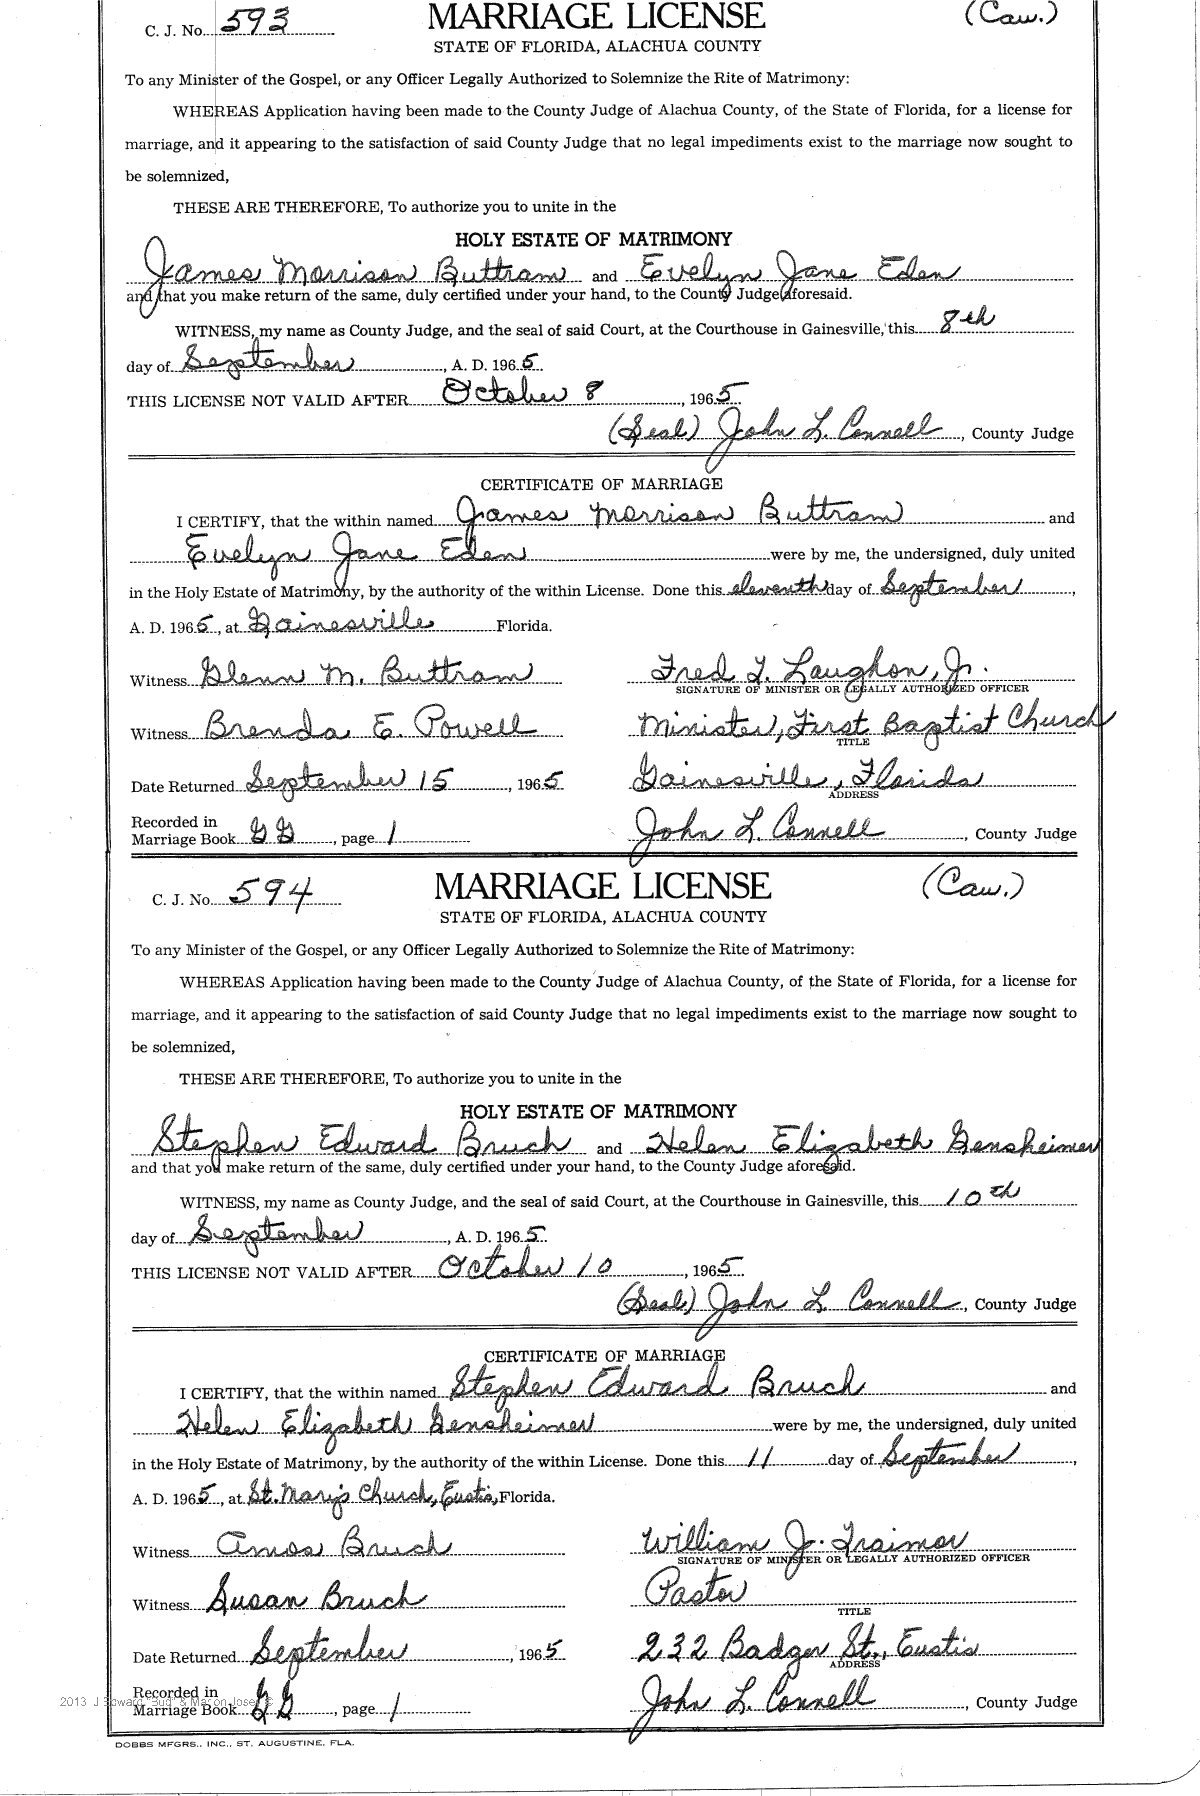 C. J. No. 593 MARRIAGE LICENSE (Caw.)
STATE OF FLORIDA, ALACHUA COUNTY
To any Minister of the Gospel, or any Officer Legally Authorized to Solemnize the Rite of Matrimony:
WHEREAS Application having been made to the County Judge of Alachua County, of the State of Florida, for a license for
marriage, and it appearing to the satisfaction of said County Judge that no legal impediments exist to the marriage now sought to
be solemnized,
THESE ARE THEREFORE, To authorize you to unite in the
HOLY ESTATE OF MATRIMONY
James Morrison Buttram and Evelyn Jane Eden
and that you make return of the same, duly certified under your hand, to the County Judge aforesaid.
WITNESS, my name as County Judge, and the seal of said Court, at the Courthouse in Gainesville, this 8th
day of September, A. D. 1965.
THIS LICENSE NOT VALID AFTER October 8, 1965
(Seal) John L. Connell, County Judge
CERTIFICATE OF MARRIAGE
I CERTIFY, that the within named James Morrison Buttram and
Evelyn Jane Eden were by me, the undersigned, duly united
in the Holy Estate of Matrimony, by the authority of the within License. Done this eleventh day of September,
A. D. 1965, at Gainesville Florida.
Witness Glenn M. Buttram Fred T. Laughon, Jr.
SIGNATURE OF MINISTER OR LEGALLY AUTHORIZED OFFICER
Witness Brenda E. Powell Minister, First Baptist Church
TITLE
Date Returned September 15, 1965 Gainesville, Florida
ADDRESS
Recorded in
Marriage Book GG, page 1 John L. Connell, County Judge
C. J. No. 594 MARRIAGE LICENSE (Caw.)
STATE OF FLORIDA, ALACHUA COUNTY
To any Minister of the Gospel, or any Officer Legally Authorized to Solemnize the Rite of Matrimony:
WHEREAS Application having been made to the County Judge of Alachua County, of the State of Florida, for a license for
marriage, and it appearing to the satisfaction of said County Judge that no legal impediments exist to the marriage now sought to
be solemnized,
THESE ARE THEREFORE, To authorize you to unite in the
HOLY ESTATE OF MATRIMONY
Stephen Edward Bruch and Helen Elizabeth Gensheimer
and that you make return of the same, duly certified under your hand, to the County Judge aforesaid.
WITNESS, my name as County Judge, and the seal of said Court, at the Courthouse in Gainesville, this 10th
day of September, A. D. 1965.
THIS LICENSE NOT VALID AFTER October 10, 1965
(Seal) John L. Connell, County Judge
CERTIFICATE OF MARRIAGE
I CERTIFY, that the within named Stephen Edward Bruch and
Helen Elizabeth Gensheimer were by me, the undersigned, duly united
in the Holy Estate of Matrimony, by the authority of the within License. Done this 11 day of September,
A. D. 1965, at St. Mary's Church, Eustis, Florida.
Witness Amos Bruch William J. Trainor
SIGNATURE OF MINISTER OR LEGALLY AUTHORIZED OFFICER
Witness Susan Bruch Pastor
TITLE
Date Returned September, 1965 232 Badger St., Eustis
ADDRESS
Recorded in
2013 J Edward "Bud" & Marion Josey ©
Marriage Book GG, page 1 John L. Connell, County Judge
DOBBS MFGRS., INC., ST. AUGUSTINE, FLA.